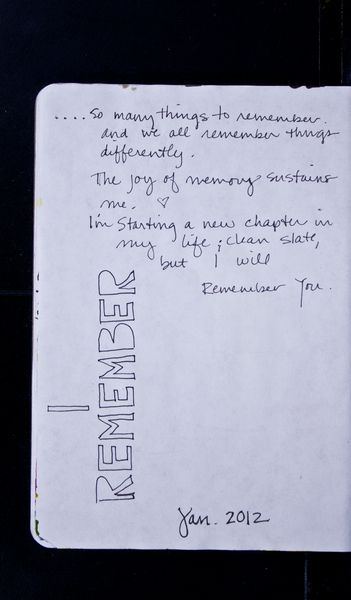 ....so many things to remember.
and we all remember things
differently.
The joy of memory sustains
me. ♡
I'm starting a new chapter in
my life; clean slate,
but I will
Remember You.
I
REMEMBER
Jan. 2012